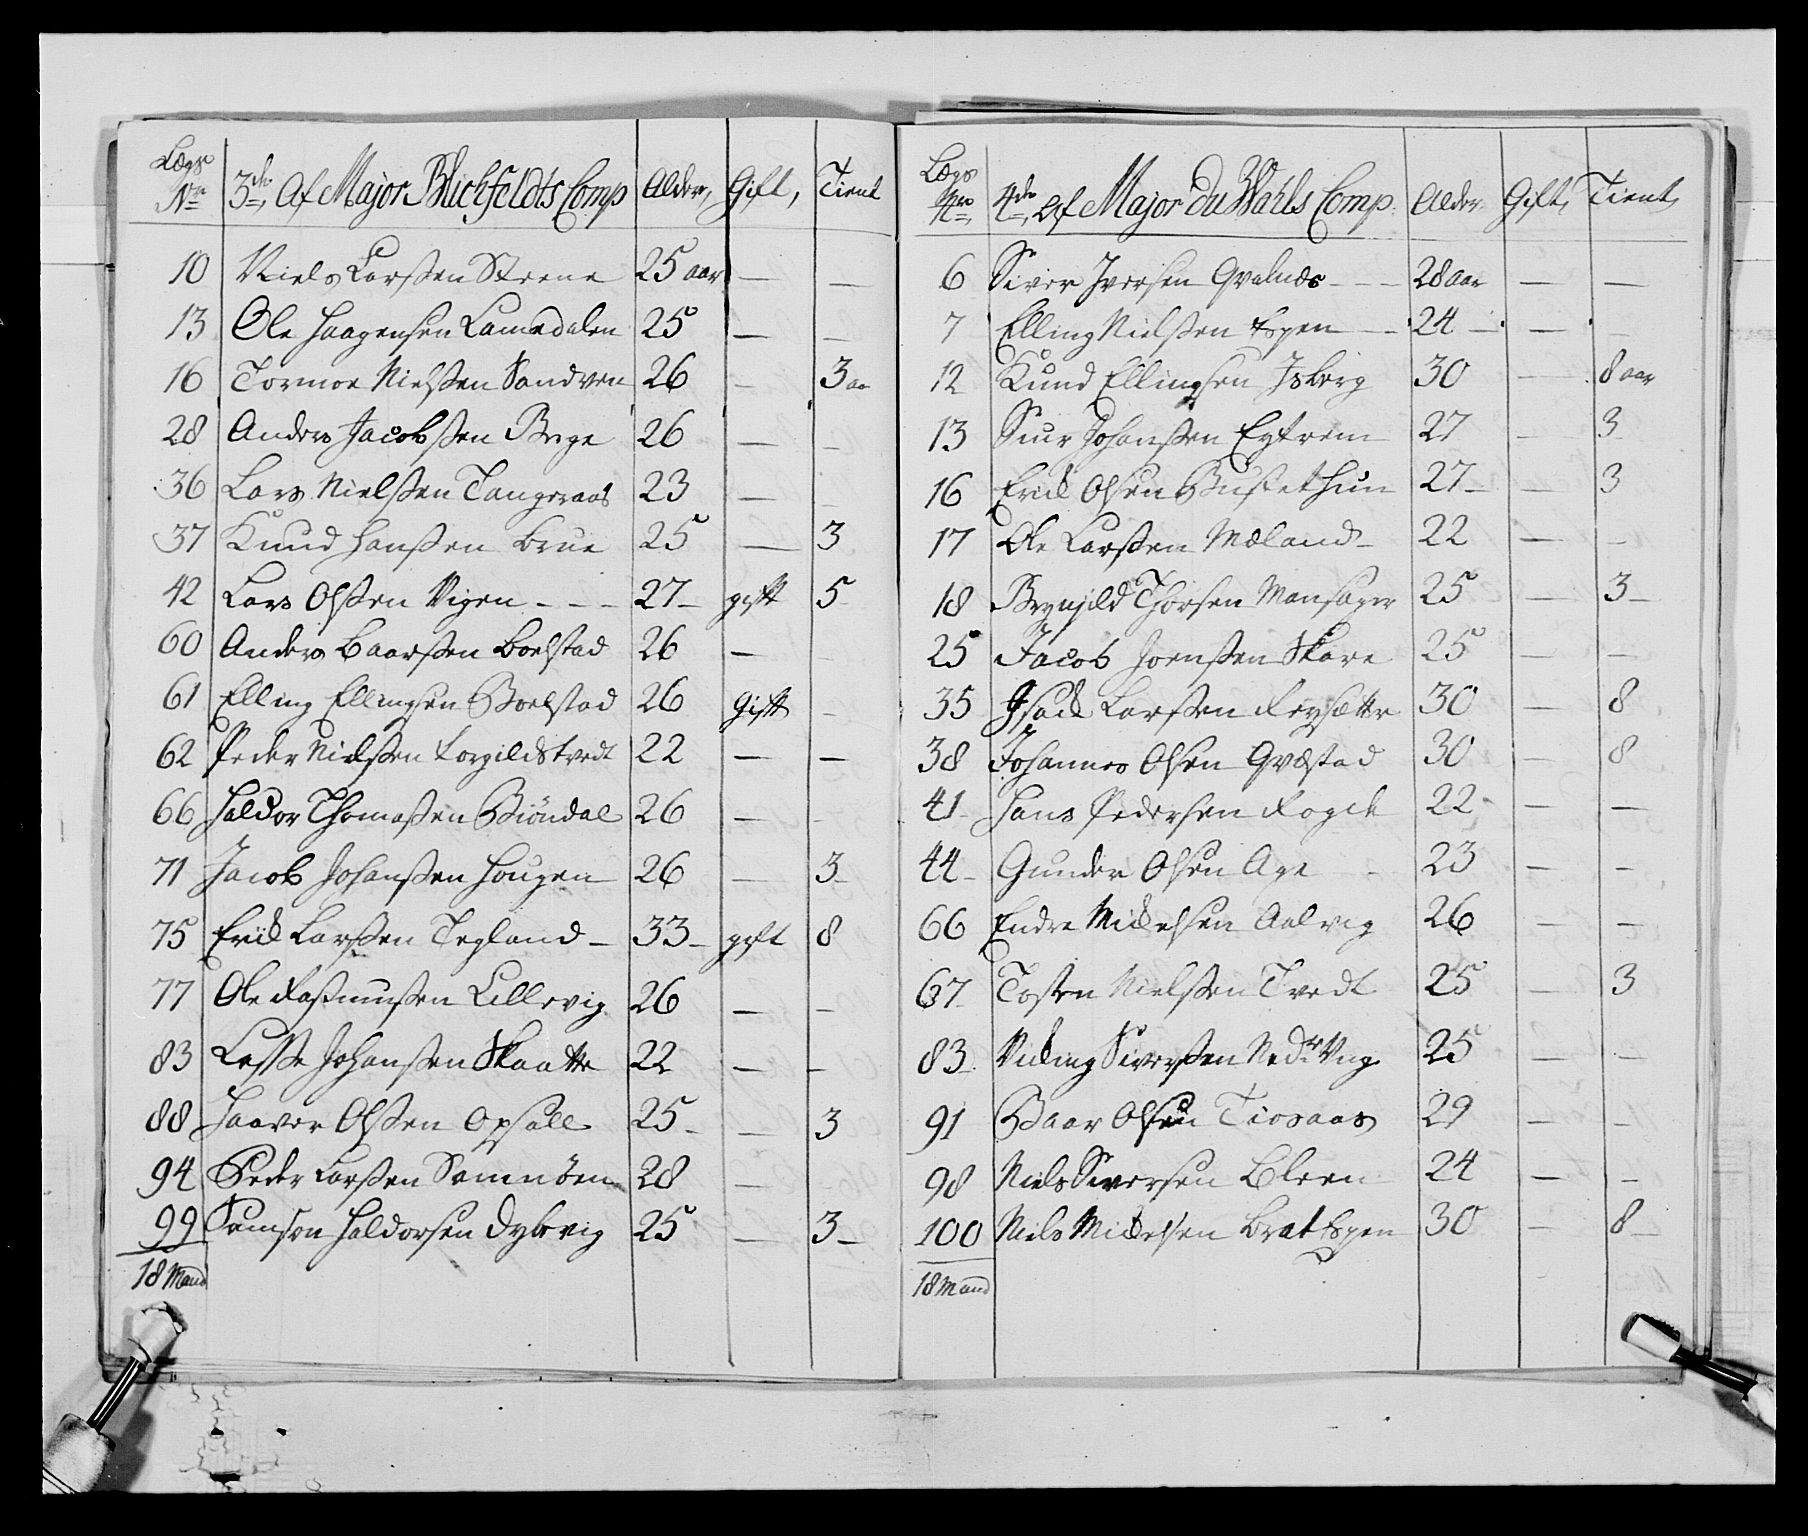 Lægs No 3de, Af Major Blichfeldts Comp Alder, Gift, Tient
10 Niels Larssen Steene 25 aar — —
13 Ole Haagensen Lamedalen 25 — —
16 Tormoe Nielssen Sandven 26 — 3 aa
28 Anders Jacobssen Berge 26 — —
36 Lars Nielssen Tangeraas 23 — —
37 Knud Hanssen Brue 25 — 3
42 Lars Olssen Vigen 27 gift 5
60 Anders Baarssen Boelstad 26 — —
61 Elling Ellingsen Boelstad 26 Gift —
62 Peder Nielssen Torgildstvedt 22 — —
66 Haldor Thomassen Biöndal 26 — —
71 Jacob Johanssen Hougen 26 — 3
75 Erick Larssen Tegland 33 gift 8
77 Ole Rasmussen Lillevig 26 — —
83 Lasse Johanssen Skaatte 22 — —
88 Haaver Olssen Opsall 25 — 3
94 Peder Larssen Samnöen 28 — —
99 Samson Haldorsen Dybvig 25 — 3
18 Mand
Lægs Nro 4de, Af Major du Wahls Comp. Alder Gift, Tient,
6 Siver Iversen Qvalnæs 28 aar — —
7 Elling Nielssen Espen 24 — —
12 Knud Ellingsen Isberg 30 — 8 aar
13 Siur Johanssen Eytrem 27 — 3
16 Erick Olsen Bustethun 27 — 3
17 Ole Larssen Mæland 22 — —
18 Brynjild Thorsen Mansager 25 — 3
25 Jacob Joenssen Skare 25 — —
35 Isack Larssen Reysætter 30 — 8
38 Johannes Olsen Qvæstad 30 — 8
41 Hans Pedersen Rogde 22 — —
44 Gunder Olsen Age 23 — —
66 Endre Mickelsen Aalvig 26 — —
67 Tosten Nielssen Tvedt 25 — 3
83 Viking Siverssen Nedr Vig 25 — —
91 Baar Olsen Tiosaas 29 — —
98 Niels Siversen Bleen 24 — —
100 Niels Mickelsen Brat Espen 30 — 8
18 Mand